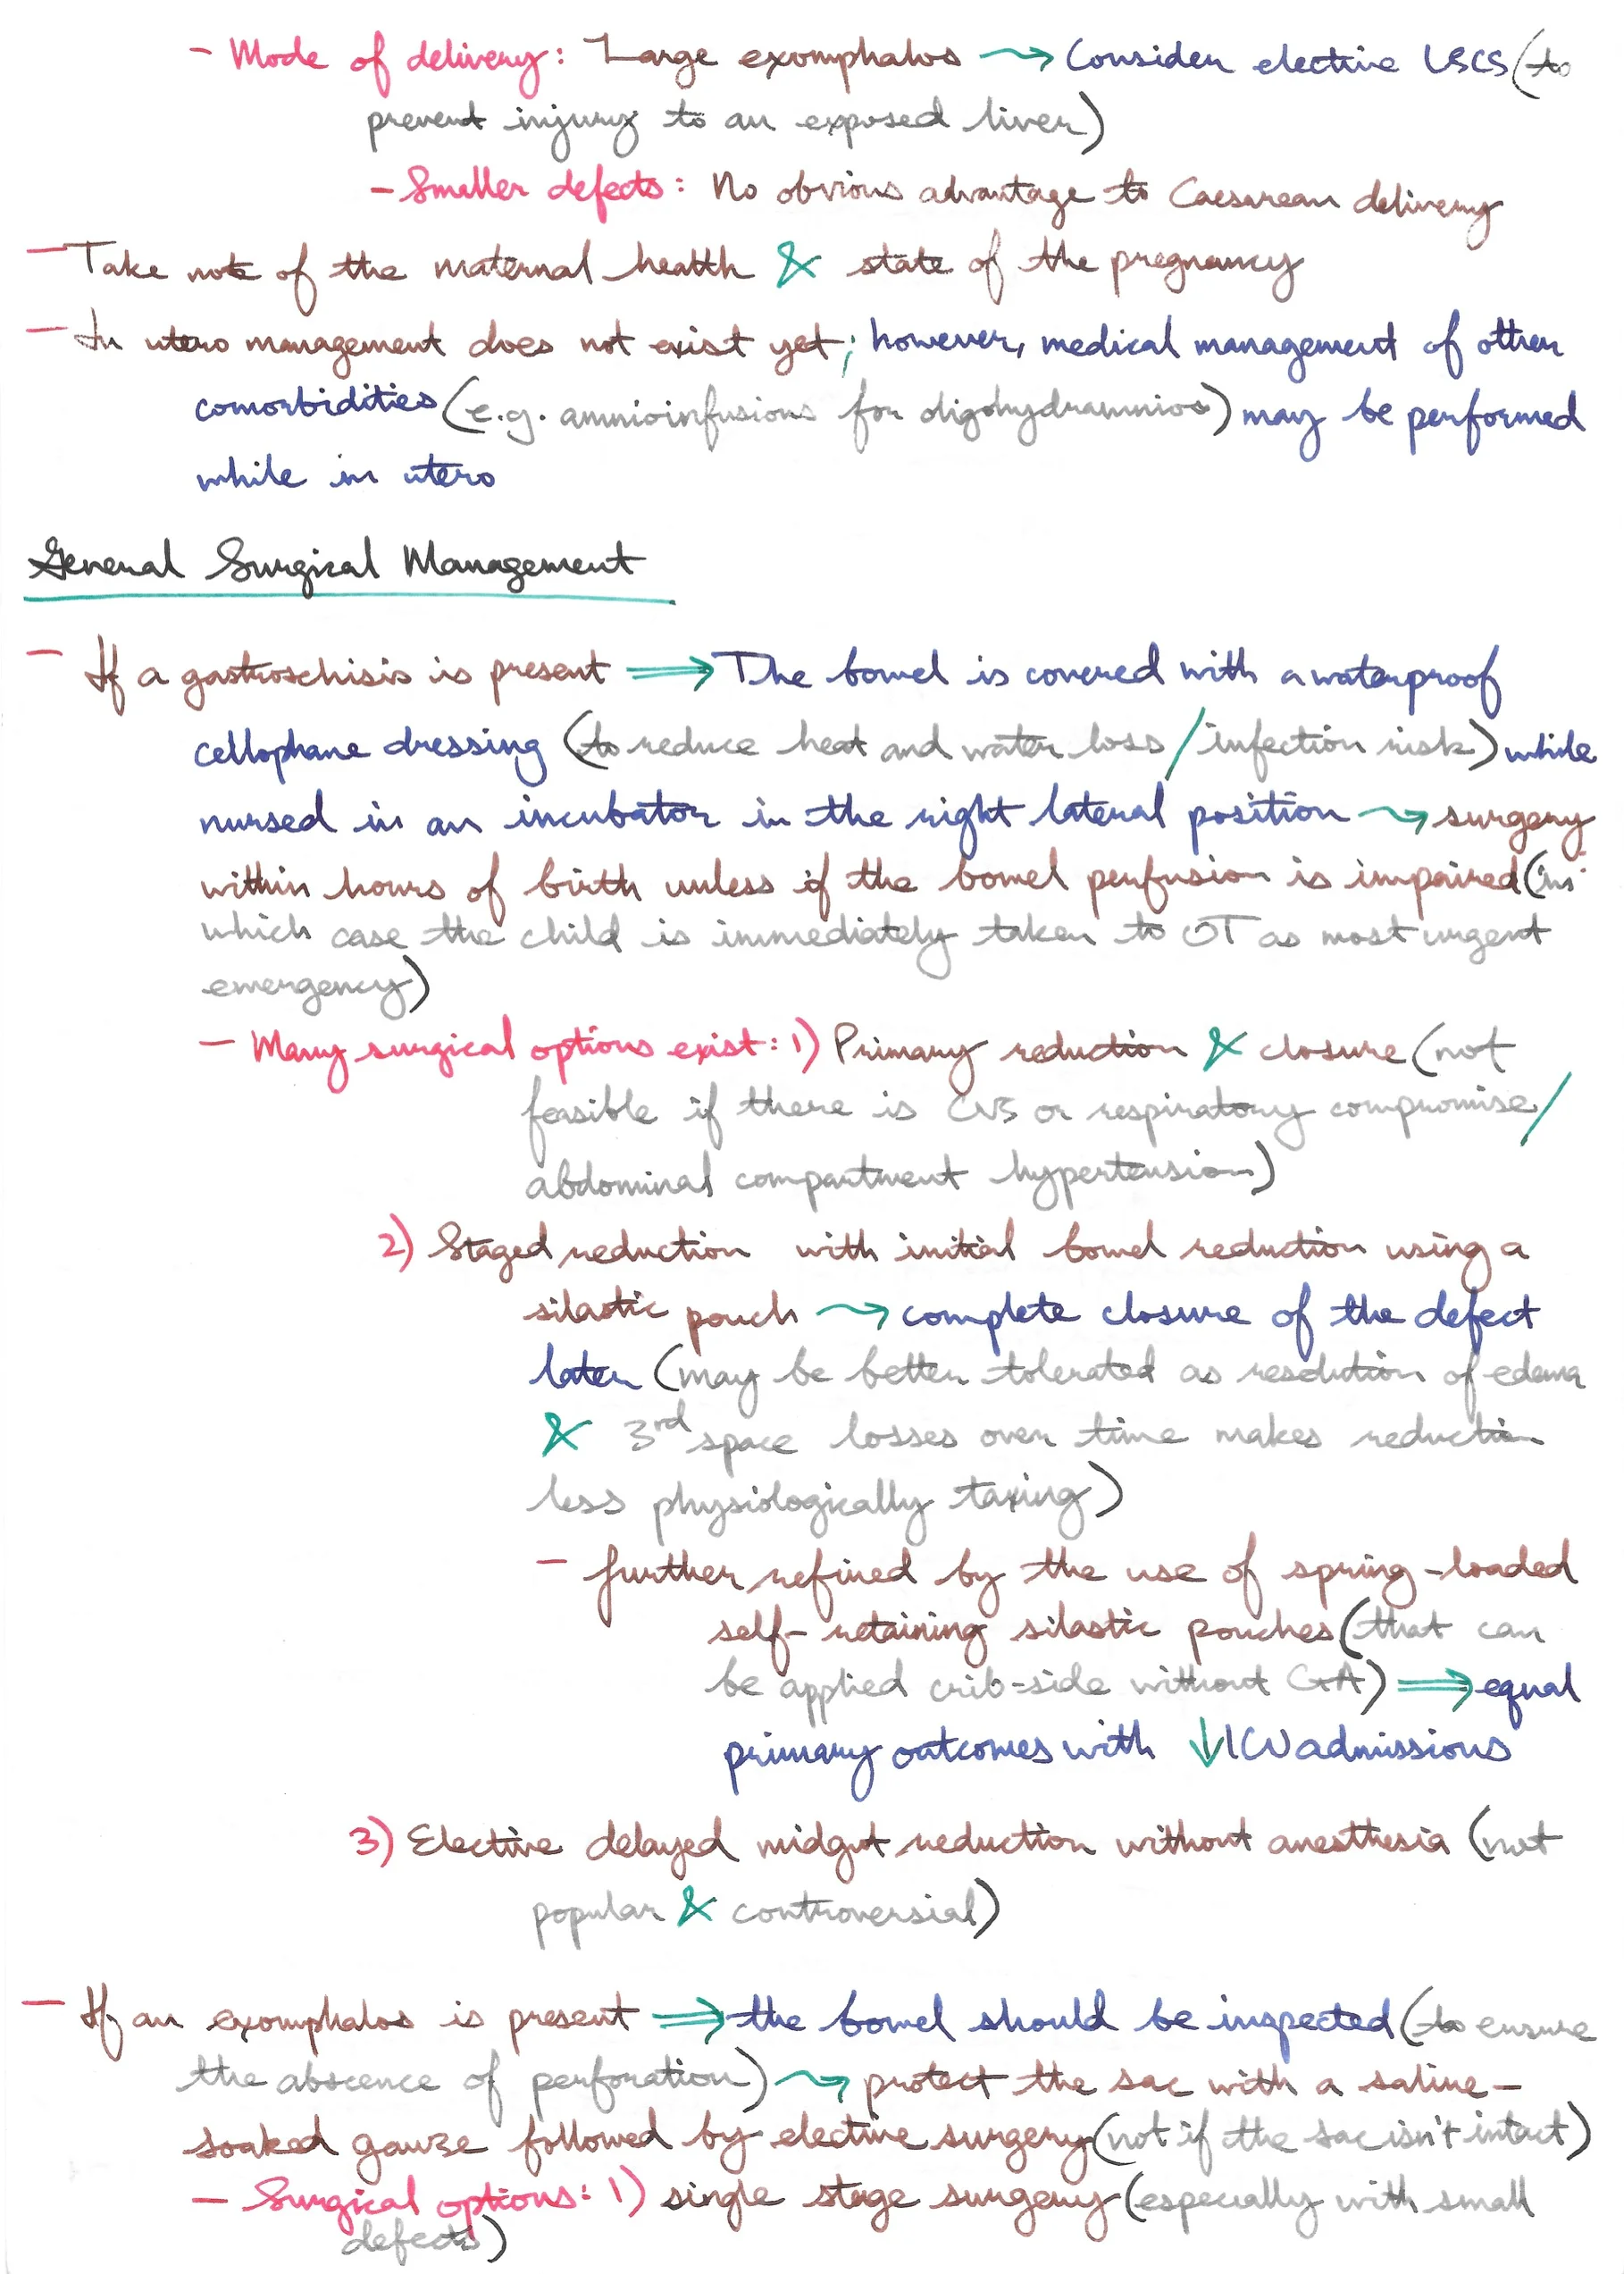 - Mode of delivery: Large exomphalos ⟿ Consider elective LSCS (to
prevent injury to an exposed liver)
- Smaller defects: No obvious advantage to Caesarean delivery
- Take note of the maternal health & state of the pregnancy
- In utero management does not exist yet; however, medical management of other
comorbidities (e.g. amnioinfusions for oligohydramnios) may be performed
while in utero
General Surgical Management
- If a gastroschisis is present ⟹ The bowel is covered with a waterproof
cellophane dressing (to reduce heat and water loss / infection risk) while
nursed in an incubator in the right lateral position ⟿ surgery
within hours of birth unless if the bowel perfusion is impaired (in
which case the child is immediately taken to OT as most urgent
emergency)
- Many surgical options exist: 1) Primary reduction & closure (not
feasible if there is CVS or respiratory compromise /
abdominal compartment hypertension)
2) Staged reduction with initial bowel reduction using a
silastic pouch ⟿ complete closure of the defect
later (may be better tolerated as resolution of edema
& 3rd space losses over time makes reduction
less physiologically taxing)
- further refined by the use of spring-loaded
self-retaining silastic pouches (that can
be applied crib-side without GA) ⟹ equal
primary outcomes with ↓ ICU admissions
3) Elective delayed midgut reduction without anesthesia (not
popular & controversial)
- If an exomphalos is present ⟹ the bowel should be inspected (to ensure
the absence of perforation) ⟿ protect the sac with a saline-
soaked gauze followed by elective surgery (not if the sac isn't intact)
- Surgical options: 1) single stage surgery (especially with small
defects)